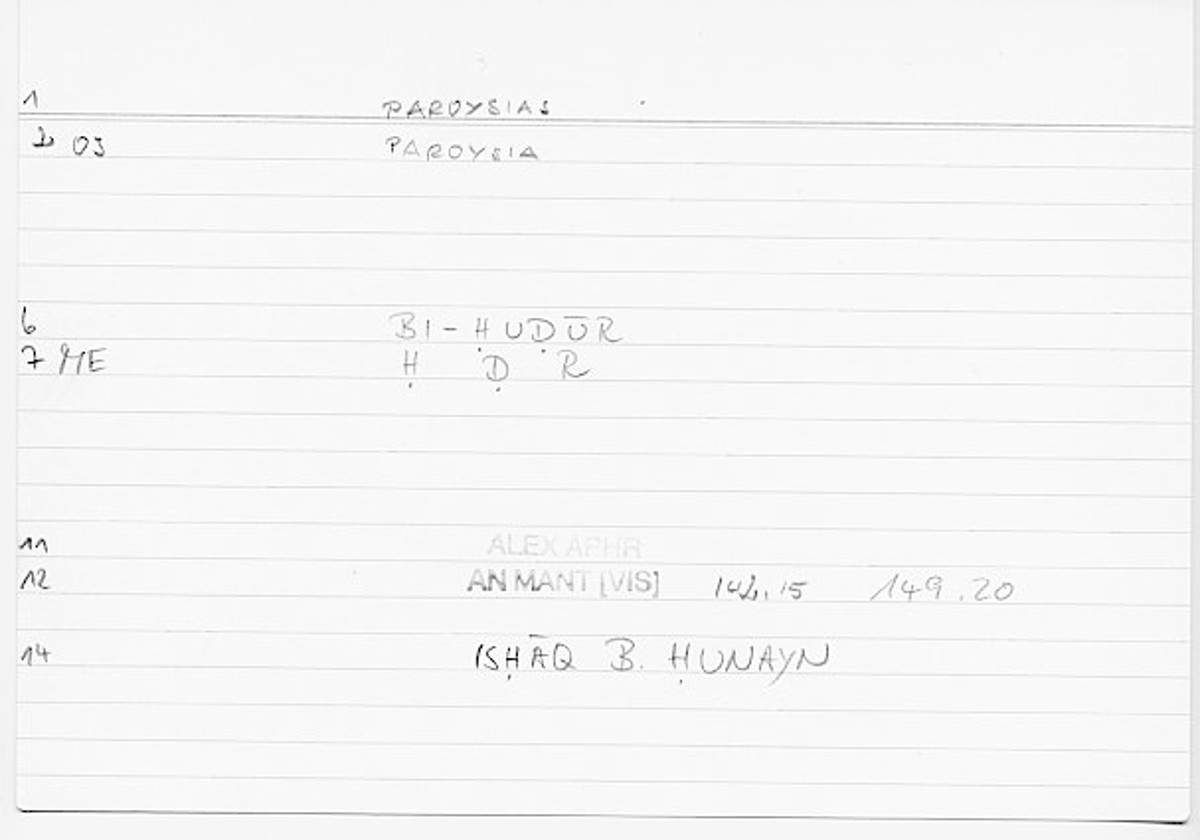 1 PAROYSIAS
D 03 PAROYSIA
6 BI-ḤUḌŪR
7 ME Ḥ Ḍ R
11 ALEX APHR
12 AN MANT [VIS] 142.15 149.20
14 ISḤĀQ B. ḤUNAYN